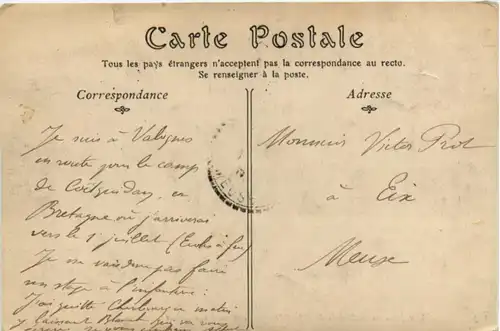 Carte Postale
Tous les pays étrangers n'acceptent pas la correspondance au recto.
Se renseigner à la poste.
Correspondance
Adresse
Je suis à Valognes
en route pour le camp
de Coëtquidan, en
Bretagne où j'arriverai
vers le 1 juillet (Ecoles à feu)
Je ne vais donc pas faire
un stage à l'infanterie:
J'ai quitté Cherbourg ce matin
y laissant
Monsieur Victor
à
Eix
Meuse
MEUSE